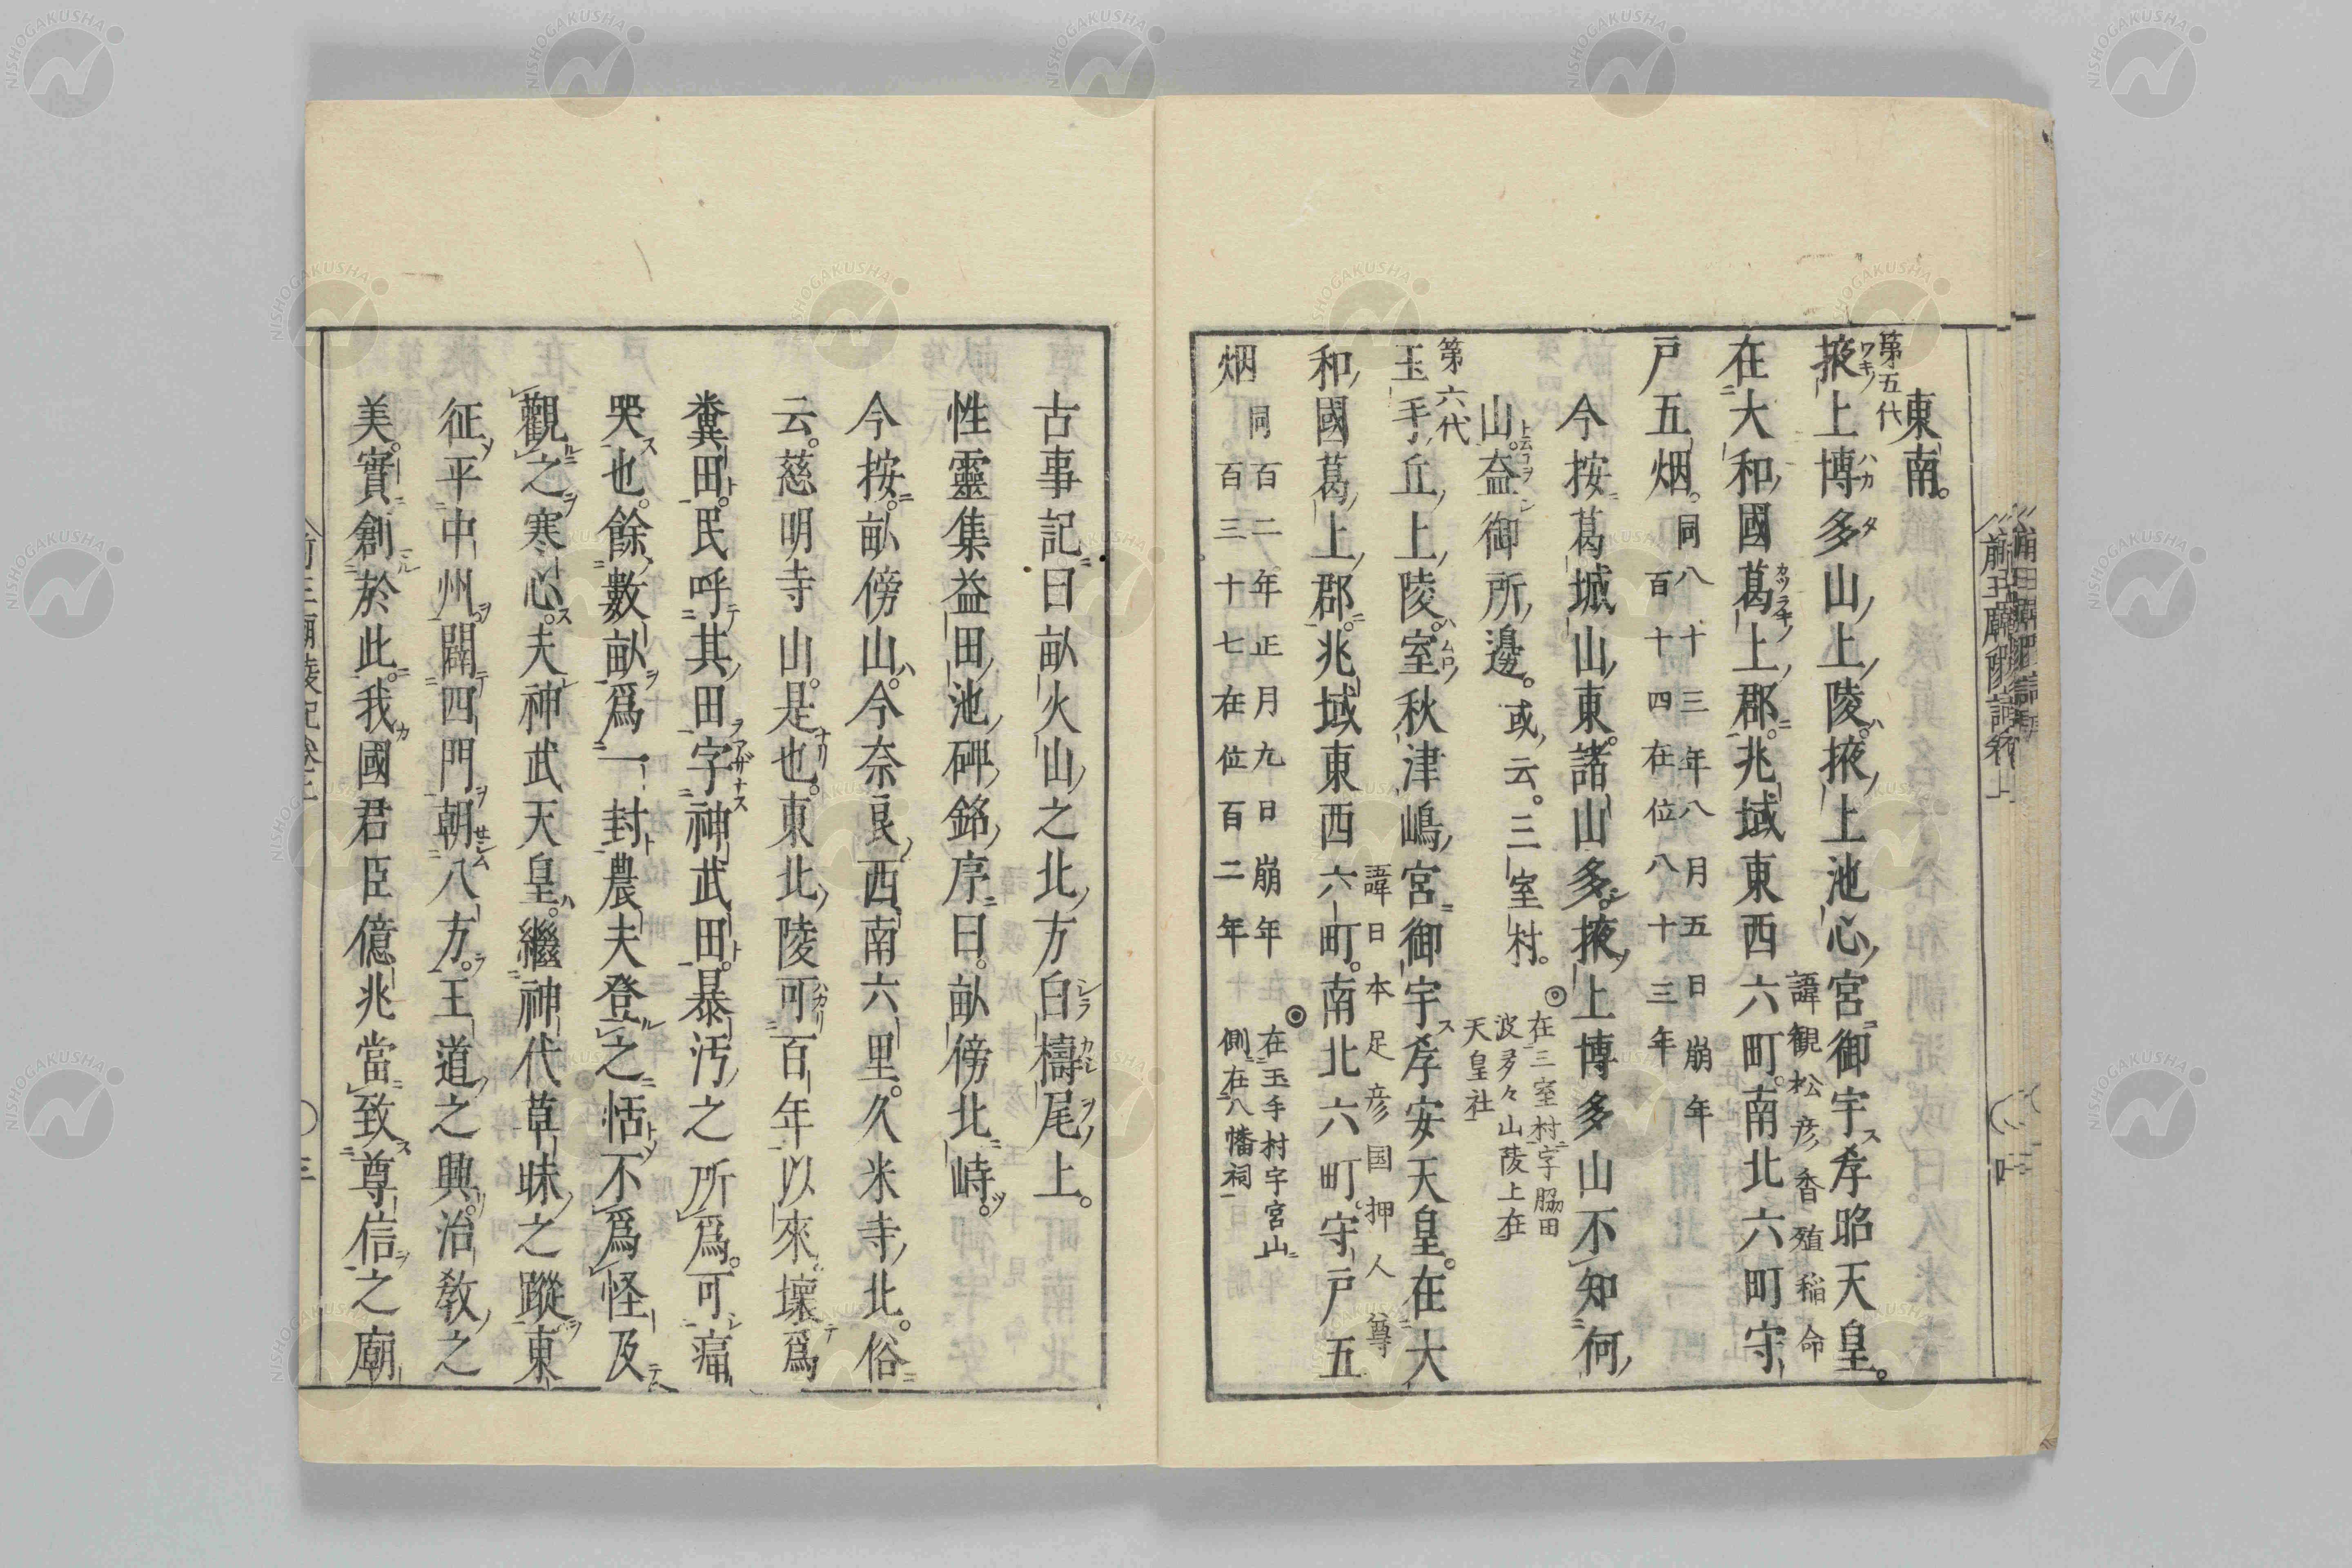 東南。
第五代
掖上博多山上陵。掖上池心宮御宇孝昭天皇。
諱観松彦香殖稲命
在大和國葛上郡。兆域東西六町。南北六町守
戸五烟。
同八十三年八月五日崩年
百十四在位八十三年
今按葛城山東諸山多。掖上博多山不知何
山。益御所邊。或云。三室村。
◎在三室村字脇田
波多々山陵上在
天皇社
第六代
玉手丘上陵。室秋津嶋宮御宇孝安天皇。在大
諱日本足彦国押人尊
和國葛上郡。兆域東西六町。南北六町。守戸五
烟
同百二年正月九日崩年
百三十七在位百二年
◎在玉手村字宮山
側在八幡祠
古事記曰畝火山之北方白檮尾上。
性靈集益田池碑銘序曰。畝傍北峙。
今按。畝傍山。今奈良西南六里。久米寺北。俗
云。慈明寺山。是也。東北陵可百年以來壞爲
糞田。民呼其田字神武田。暴汚之所爲。可痛
哭也。餘數畝爲一封農夫登之恬不爲怪及
觀之寒心。夫神武天皇。繼神代草昧之蹤東
征平中州。闢四門朝八方。王道之興。治教之
美。實創於此。我國君臣億兆當致尊信之廟